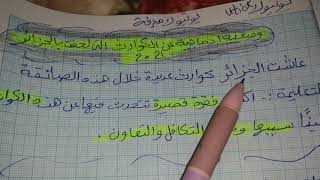 وضعية ادماجية عن الكوارث التي لحقت بالجزائر
2021
عاشت الجزائر كوارث عديدة خلال هذه الصائفة
التعليمة: أكتب فقرة قصيرة تتحدث فيها عن هذه الكوا
سببها و التكافل والتعاون.